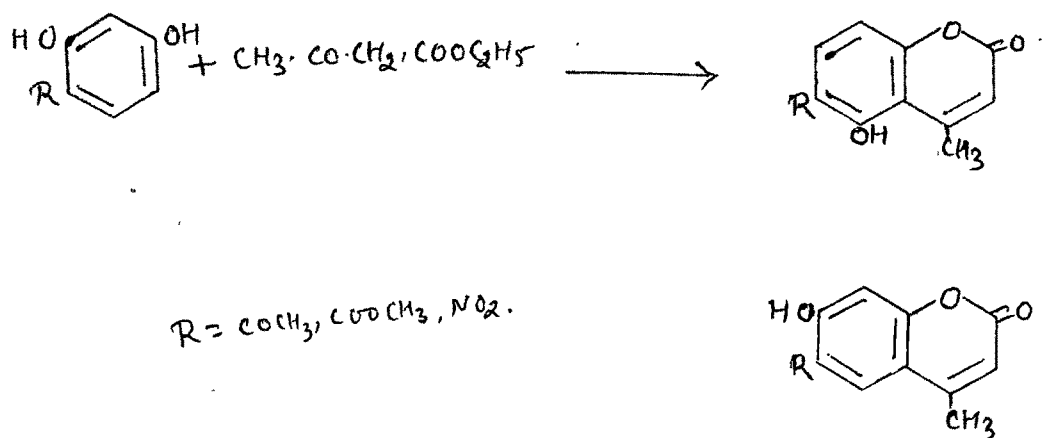 HO OH
R + CH3. CO.CH2. COOC2H5
O O
R
OH
CH3
R = COCH3, COOCH3, NO2.
HO O O
R
CH3